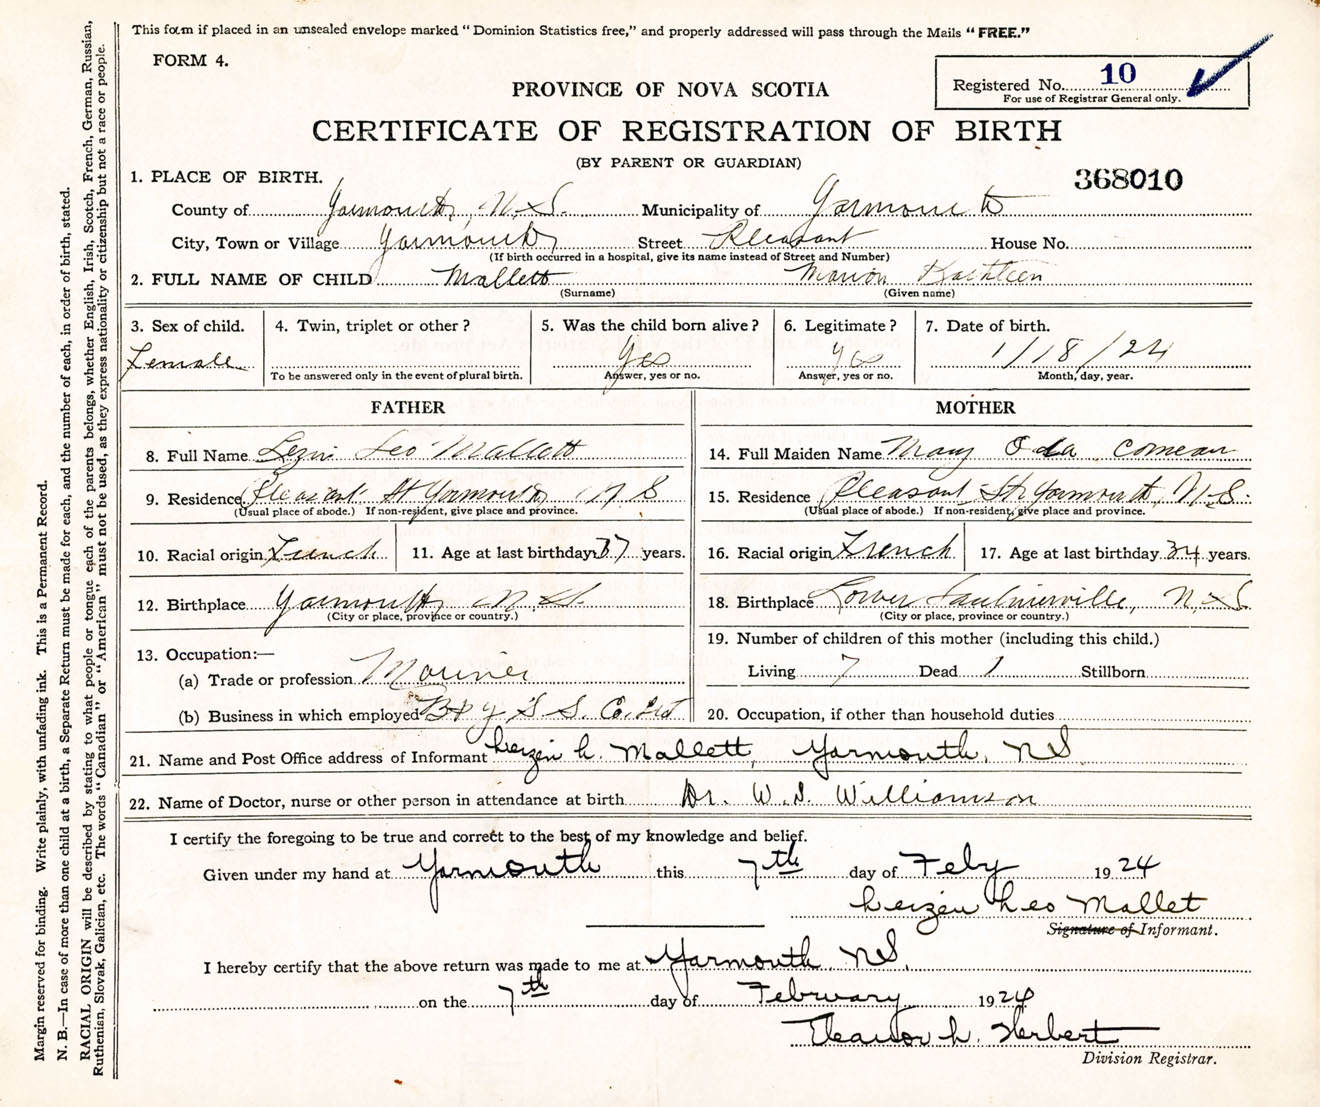 This form if placed in an unsealed envelope marked "Dominion Statistics free," and properly addressed will pass through the Mails "FREE."
FORM 4.
Registered No. 10
For use of Registrar General only.
PROVINCE OF NOVA SCOTIA
CERTIFICATE OF REGISTRATION OF BIRTH
(BY PARENT OR GUARDIAN)
368010
1. PLACE OF BIRTH.
County of Yarmouth, N.S. Municipality of Yarmouth
City, Town or Village Yarmouth Street Pleasant House No.
(If birth occurred in a hospital, give its name instead of Street and Number)
2. FULL NAME OF CHILD Mallett Marion Kathleen
(Surname) (Given name)
3. Sex of child. 4. Twin, triplet or other? 5. Was the child born alive? 6. Legitimate? 7. Date of birth.
Female Yes Yes 1/18/24
To be answered only in the event of plural birth. Answer, yes or no. Answer, yes or no. Month, day, year.
FATHER
8. Full Name Leo Mallett
9. Residence Pleasant St Yarmouth N S
(Usual place of abode.) If non-resident, give place and province.
10. Racial origin French 11. Age at last birthday 37 years.
12. Birthplace Yarmouth N.S.
(City or place, province or country.)
13. Occupation:—
(a) Trade or profession Mariner
(b) Business in which employed B & Y S. S. Co. Ltd
MOTHER
14. Full Maiden Name Mary Oda Comeau
15. Residence Pleasant St. Yarmouth, N.S.
(Usual place of abode.) If non-resident, give place and province.
16. Racial origin French 17. Age at last birthday 34 years.
18. Birthplace Lower Saulnierville, N.S.
(City or place, province or country.)
19. Number of children of this mother (including this child.)
Living 7 Dead 1 Stillborn
20. Occupation, if other than household duties
21. Name and Post Office address of Informant Leizen L. Mallett, Yarmouth, NS
22. Name of Doctor, nurse or other person in attendance at birth Dr. W. I. Williamson
I certify the foregoing to be true and correct to the best of my knowledge and belief.
Given under my hand at Yarmouth this 7th day of Feby 1924
Leizen Leo Mallet
Signature of Informant.
I hereby certify that the above return was made to me at Yarmouth NS.
on the 7th day of February 1924
Eleanor L. Herbert
Division Registrar.
Margin reserved for binding. Write plainly, with unfading ink. This is a Permanent Record.
N. B.—In case of more than one child at a birth, a Separate Return must be made for each, and the number of each, in order of birth, stated.
RACIAL ORIGIN will be described by stating to what people or tongue each of the parents belongs, whether English, Irish, Scotch, French, German, Russian,
Ruthenian, Slovak, Galician, etc. The words "Canadian" or "American" must not be used, as they express nationality or citizenship but not a race or people.